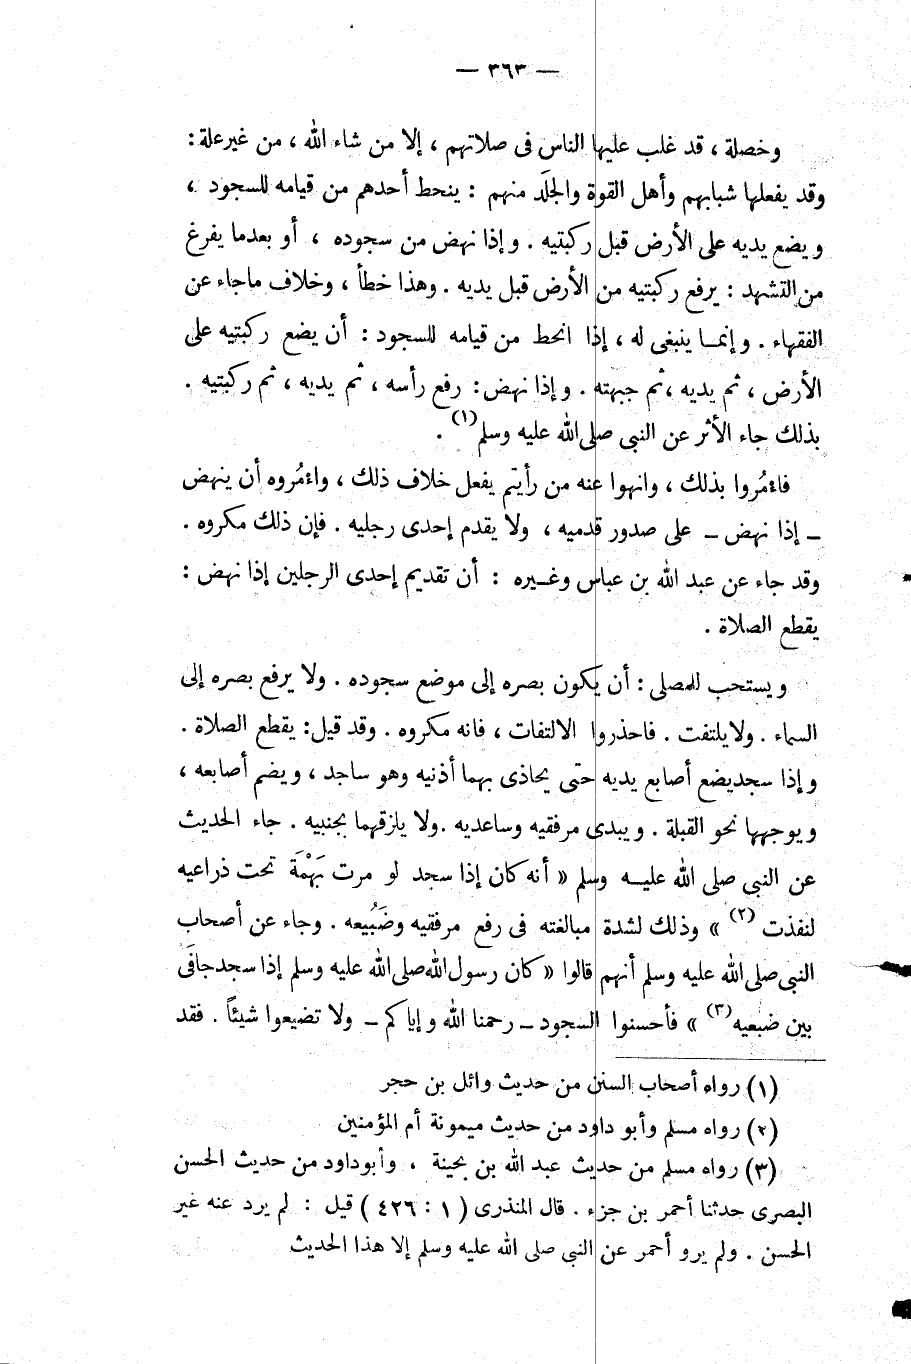 — ٣٦٣ —
وخصلة ، قد غلب عليها الناس فى صلاتهم ، إلا من شاء الله ، من غير علة :
وقد يفعلها شبابهم وأهل القوة والجلَد منهم : ينحط أحدهم من قيامه للسجود ،
ويضع يديه على الأرض قبل ركبتيه . وإذا نهض من سجوده ، أو بعدما يفرغ
من التشهد : يرفع ركبتيه من الأرض قبل يديه . وهذا خطأ ، وخلاف ماجاء عن
الفقهاء . وإنمـا ينبغى له ، إذا انحط من قيامه للسجود : أن يضع ركبتيه على
الأرض ، ثم يديه ، ثم جبهته . وإذا نهض : رفع رأسه ، ثم يديه ، ثم ركبتيه .
بذلك جاء الأثر عن النبى صلى الله عليه وسلم (١) .
فاءمُروا بذلك ، وانهوا عنه من رأيتم يفعل خلاف ذلك ، واءمُروه أن ينهض
ــ إذا نهض ــ على صدور قدميه ، ولا يقدم إحدى رجليه . فإن ذلك مكروه .
وقد جاء عن عبد الله بن عباس وغـيره : أن تقديم إحدى الرجلين إذا نهض :
يقطع الصلاة .
ويستحب للمصلى : أن يكون بصره إلى موضع سجوده . ولا يرفع بصره إلى
السماء . ولا يلتفت . فاحذروا الالتفات ، فانه مكروه . وقد قيل : يقطع الصلاة .
وإذا سجد يضع أصابع يديه حتى يحاذى بهما أذنيه وهو ساجد ، ويضم أصابعه ،
ويوجهها نحو القبلة . ويبدى مرفقيه وساعديه . ولا يلزقهما بجنبيه . جاء الحديث
عن النبى صلى الله عليـه وسلم « أنه كان إذا سجد لو مرت بَهْمَة تحت ذراعيه
لنفذت (٢) » وذلك لشدة مبالغته فى رفع مرفقيه وضَبُيعه . وجاء عن أصحاب
النبى صلى الله عليه وسلم أنهم قالوا « كان رسول الله صلى الله عليه وسلم إذا سجد جافَى
بين ضبعيه (٣) » فأحسنوا السجود ــ رحمنا الله وإياكم ــ ولا تضيعوا شيئاً . فقد
(١) رواه أصحاب السنن من حديث وائل بن حجر
(٢) رواه مسلم وأبو داود من حديث ميمونة أم المؤمنين
(٣) رواه مسلم من حديث عبد الله بن بحينة ، وأبوداود من حديث الحسن
البصرى حدثنا أحمر بن جزء . قال المنذرى ( ١ : ٤٢٦ ) قيل : لم يرد عنه غير
الحسن . ولم يرو أحمر عن النبى صلى الله عليه وسلم إلا هذا الحديث